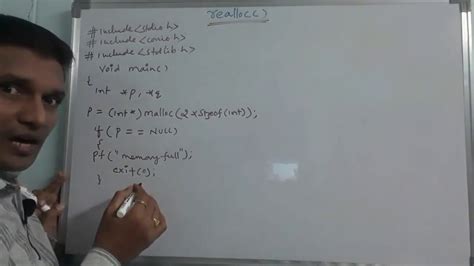 realloc()
#include<stdio.h>
#include<conio.h>
#include<stdlib.h>
void main()
{
int *p, *q
p = (int*) malloc(2 x sizeof(int));
if (p == NULL)
{
pf("memory full");
exit(0);
}